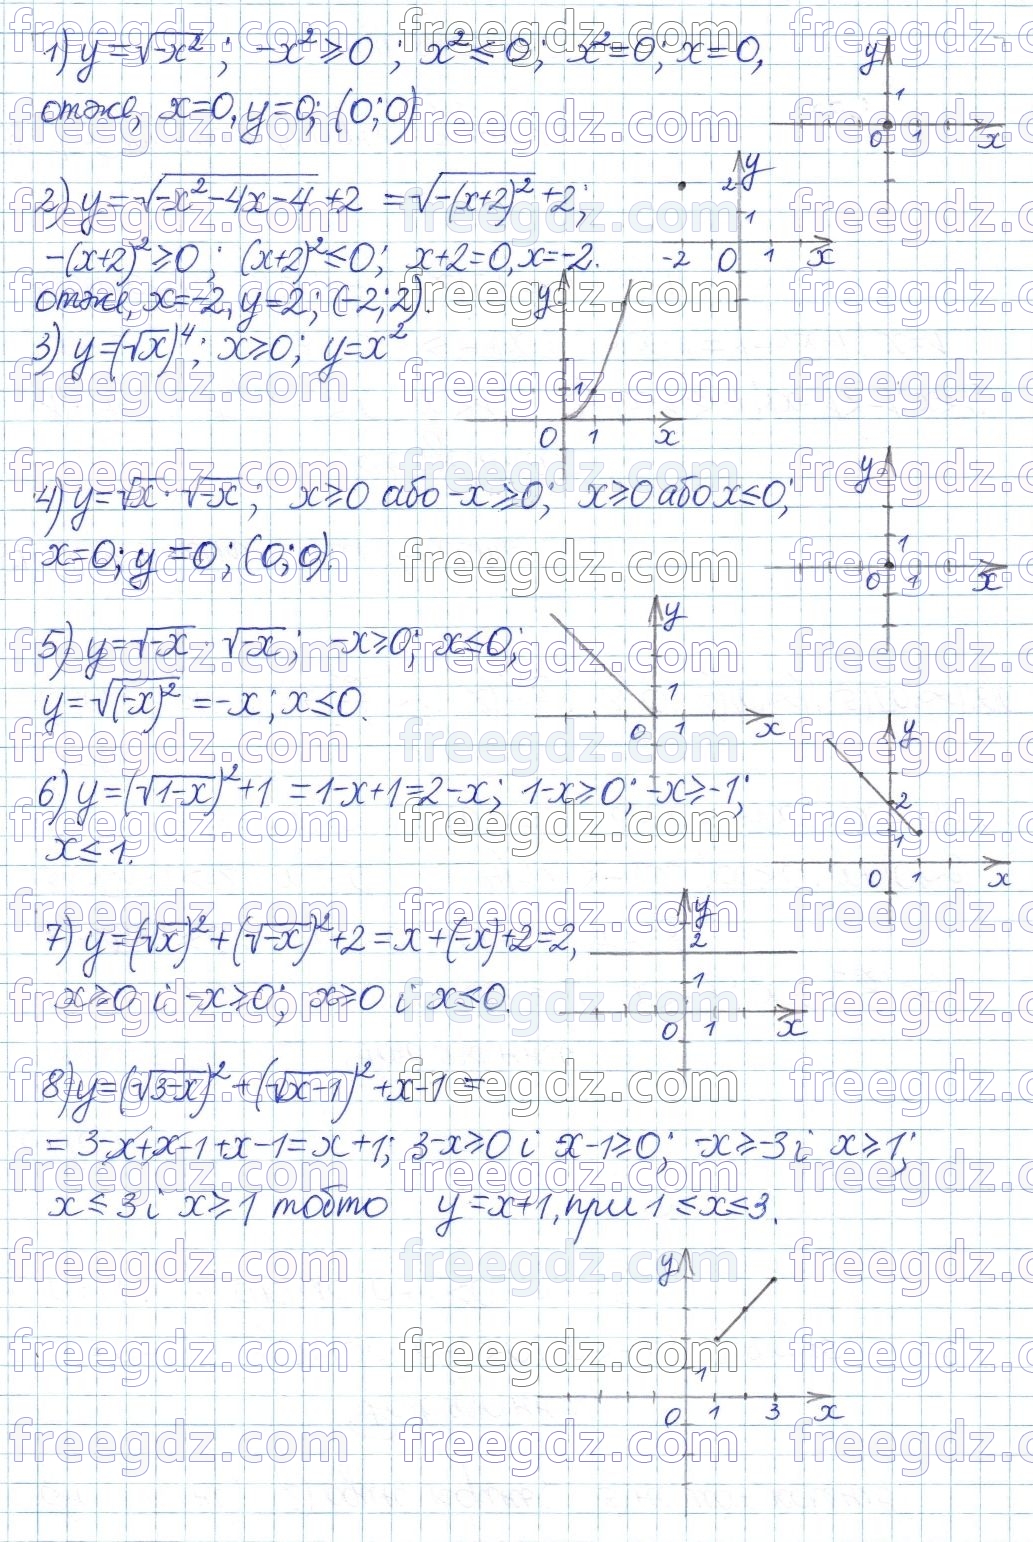 1) y=√(-x²); -x²≥0; x²≤0; x²=0; x=0,
отже, x=0, y=0; (0;0)
2) y=√(-x²-4x-4)+2 =√(-(x+2)²)+2;
-(x+2)²≥0; (x+2)²≤0; x+2=0, x=-2.
отже, x=-2, y=2; (-2;2).
3) y=(√x)⁴; x≥0; y=x²
4) y=√x·√(-x); x≥0 або -x≥0; x≥0 або x≤0;
x=0; y=0; (0;0).
5) y=√(-x)·√(-x); -x≥0; x≤0;
y=√((-x)²)=-x; x≤0.
6) y=(√(1-x))²+1 =1-x+1=2-x; 1-x≥0; -x≥-1;
x≤1.
7) y=(√x)²+(√(-x))²+2=x+(-x)+2=2,
x≥0 і -x≥0; x≥0 і x≤0.
8) y=(√(3-x))²+(√(x-1))²+x-1 =
= 3-x+x-1+x-1=x+1; 3-x≥0 і x-1≥0; -x≥-3 і x≥1;
x≤3 і x≥1 тобто y=x+1, при 1≤x≤3.
y
1
0 1 x
y
2
1
-2 0 1 x
y
1
0 1 x
y
1
0 1 x
y
1
0 1 x
y
2
1
0 1 x
y
2
1
0 1 x
y
1
0 1 3 x
freegdz.com